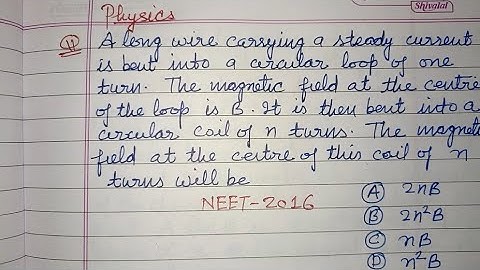 Shivalal
Physics
11 A long wire carrying a steady current
is bent into a circular loop of one
turn. The magnetic field at the centre
of the loop is B. It is then bent into a
circular coil of n turns. The magnetic
field at the centre of this coil of n
turns will be
NEET-2016
(A) 2nB
(B) 2n²B
(C) nB
(D) n²B